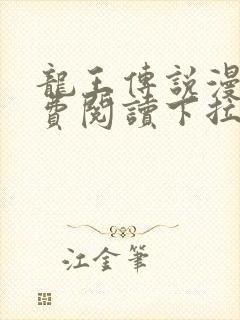 龍王傳説漫
費閱讀下拉
江金筆